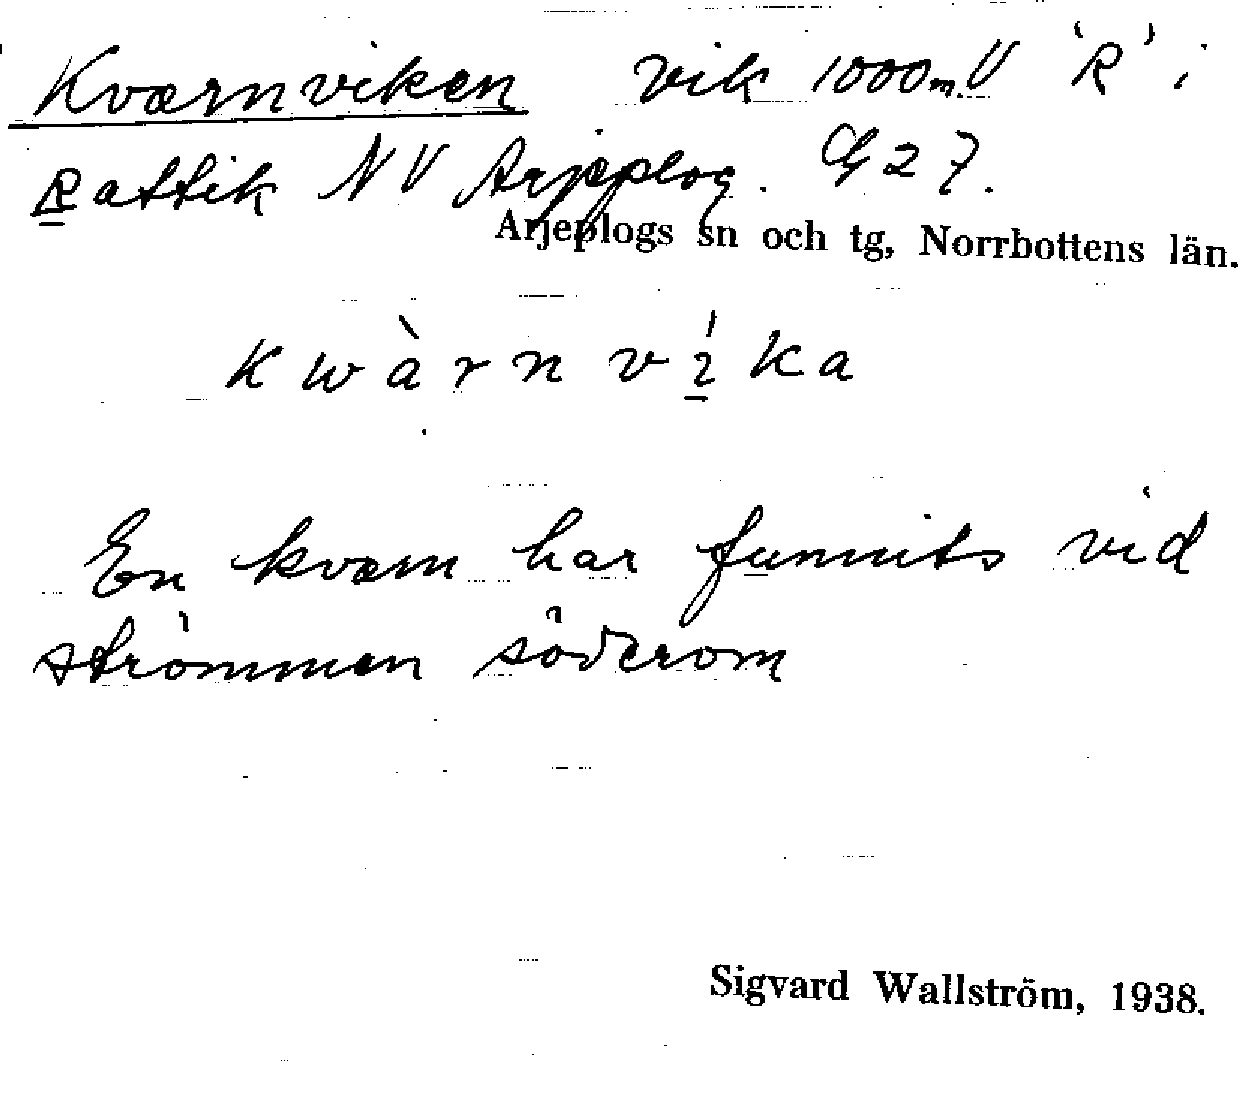 Kværnviken vik 1000m V 'R' i
Rattik NV Arjeplog. G 27.
Arjeplogs sn och tg, Norrbottens län.
kwàrnvíka
En kværn har funnits vid
strömmen söderom
Sigvard Wallström, 1938.